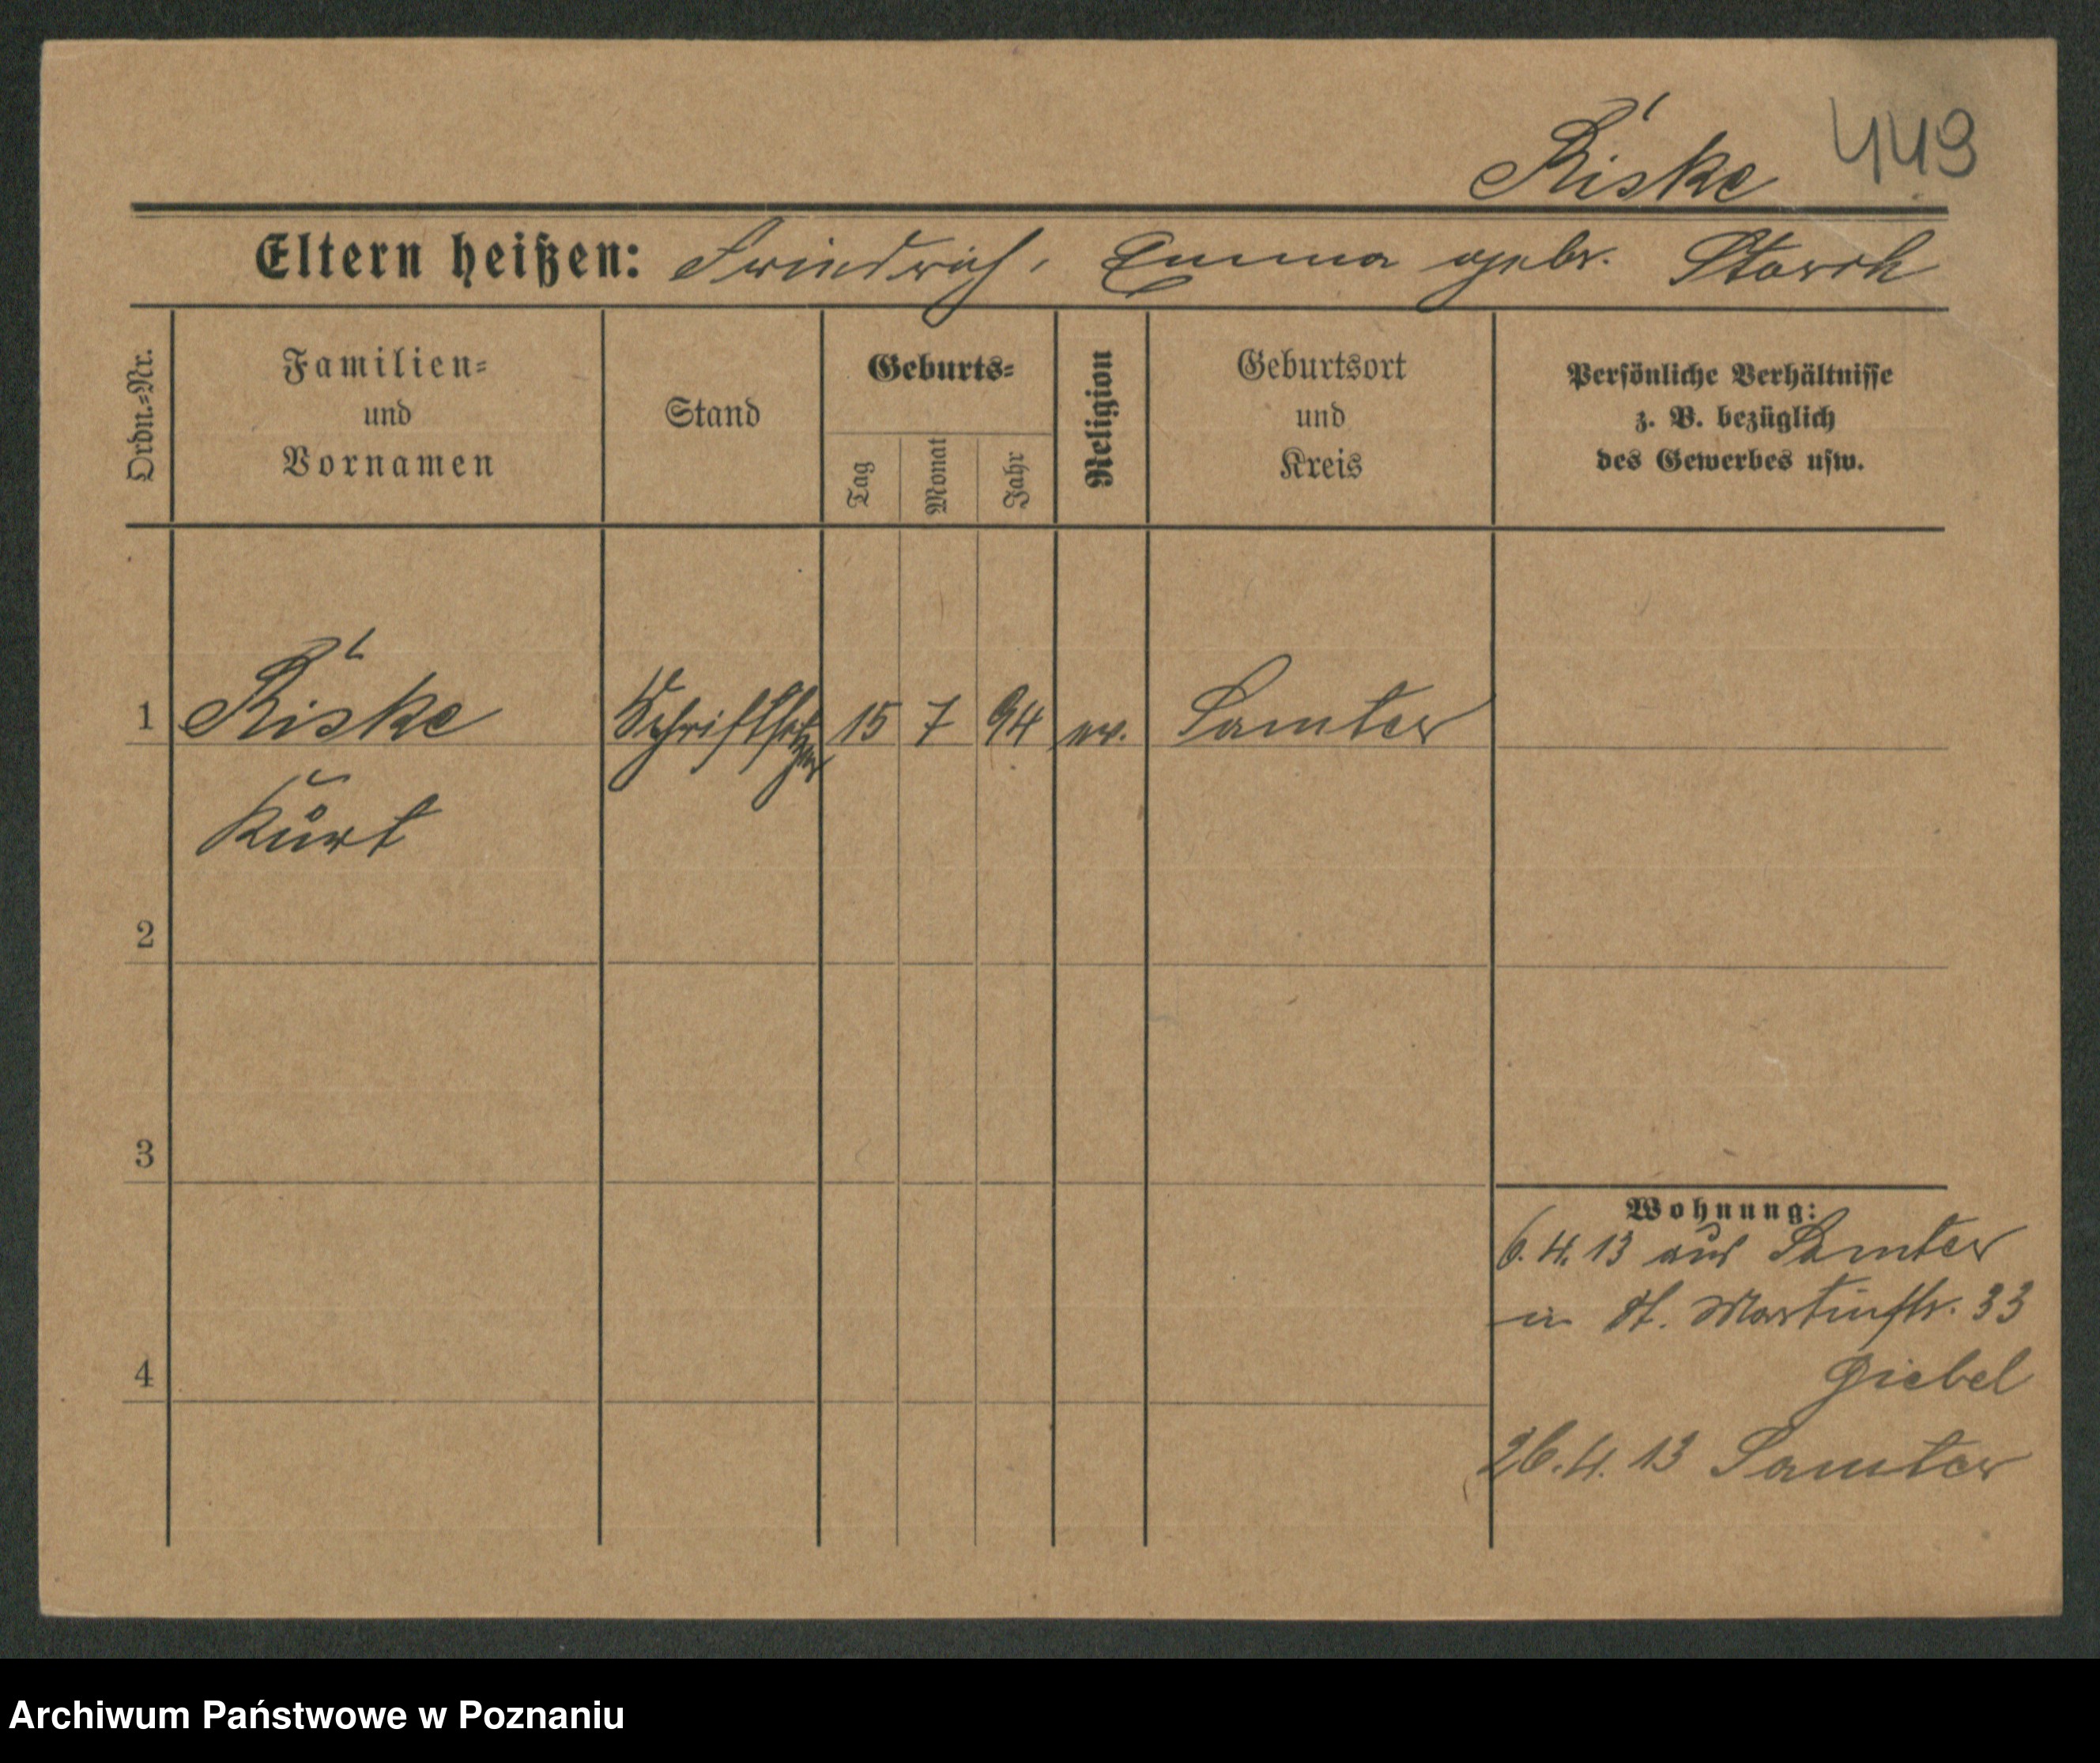 Riske 449
Eltern heißen: Friedrich, Emma gebr. Storch
Ordn.-Nr.
Familien-
und
Vornamen
Stand
Geburts-
Tag
Monat
Jahr
Religion
Geburtsort
und
Kreis
Persönliche Verhältnisse
z. B. bezüglich
des Gewerbes usw.
1 Riske Schriftsetzer 15 7 94 ev. Samter
Kurt
2
3
4
Wohnung:
6. 4. 13 aus Samter
in St. Martinstr. 33
Giebel
26. 4. 13 Samter
Archiwum Państwowe w Poznaniu